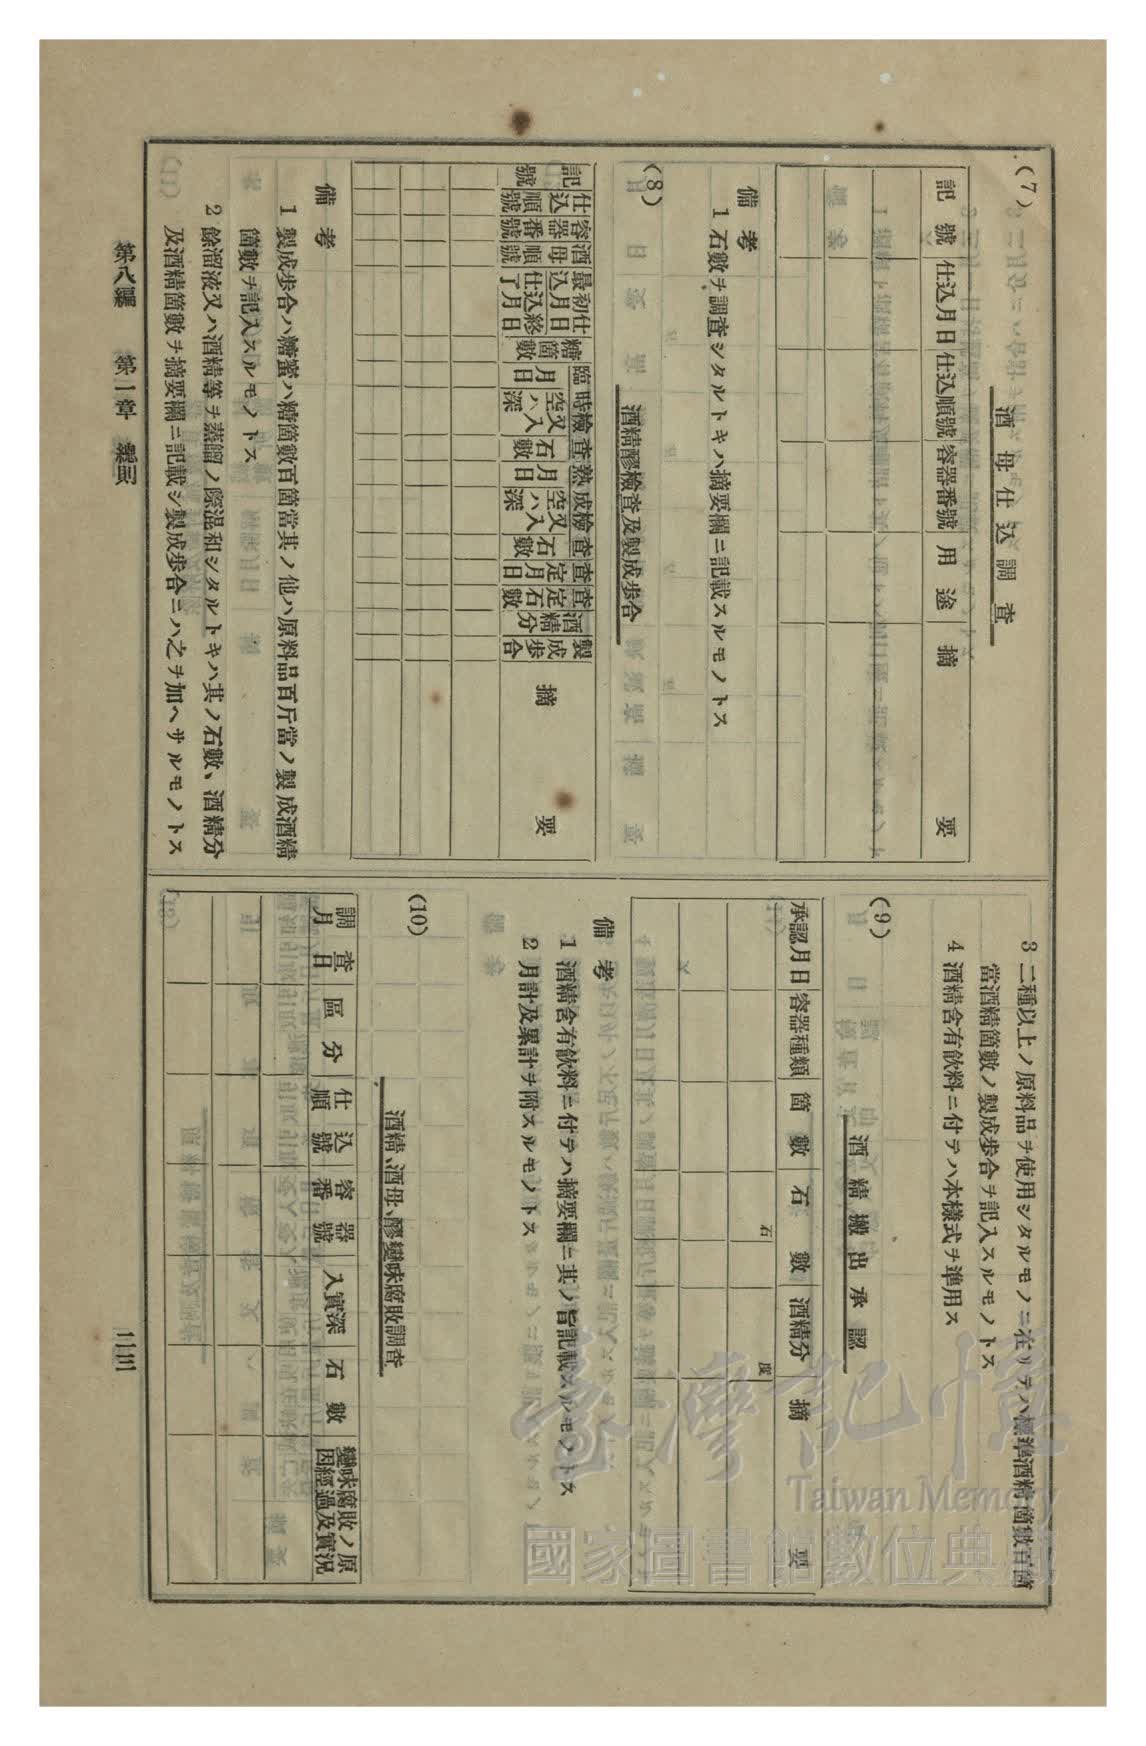 (7)
酒母仕込調査
記號 仕込月日 仕込順號 容器番號 用途 摘要
備考
1 石數ヲ調査シタルトキハ摘要欄ニ記載スルモノトス
(8)
酒精醪檢査及製成步合
記號 仕込順號 容器番號 酒母順號 最初仕込月日 仕込終了月日 糖箇數 臨時檢査 月日 空又ハ入深 石數 熟成檢査 月日 空又ハ入深 石數 查定月日 查定石數 酒精分 製成步合 摘要
備考
1 製成步合ハ糖蜜ハ糖箇數百箇當其ノ他ハ原料品百斤當ノ製成酒精
箇數ヲ記入スルモノトス
2 餘溜液又ハ酒精等ヲ蒸餾ノ際混和シタルトキハ其ノ石數、酒精分
及酒精箇數ヲ摘要欄ニ記載シ製成步合ニハ之ヲ加ヘサルモノトス
3 二種以上ノ原料品ヲ使用シタルモノニ在リテハ標準酒精箇數百箇
當酒精箇數ノ製成步合ヲ記入スルモノトス
4 酒精含有飮料ニ付テハ本樣式ヲ準用ス
(9)
酒精搬出承認
承認月日 容器種類 箇數 石數 酒精分 摘要
石 度
備考
1 酒精含有飮料ニ付テハ摘要欄ニ其ノ旨記載スルモノトス
2 月計及累計ヲ附スルモノトス
(10)
酒精、酒母、醪變味腐敗調査
調查月日 區分 仕込順號 容器番號 入實深 石數 變味腐敗ノ原因經過及實況
第八 第一章
臺灣記憶
Taiwan Memory
國家圖書館數位典藏